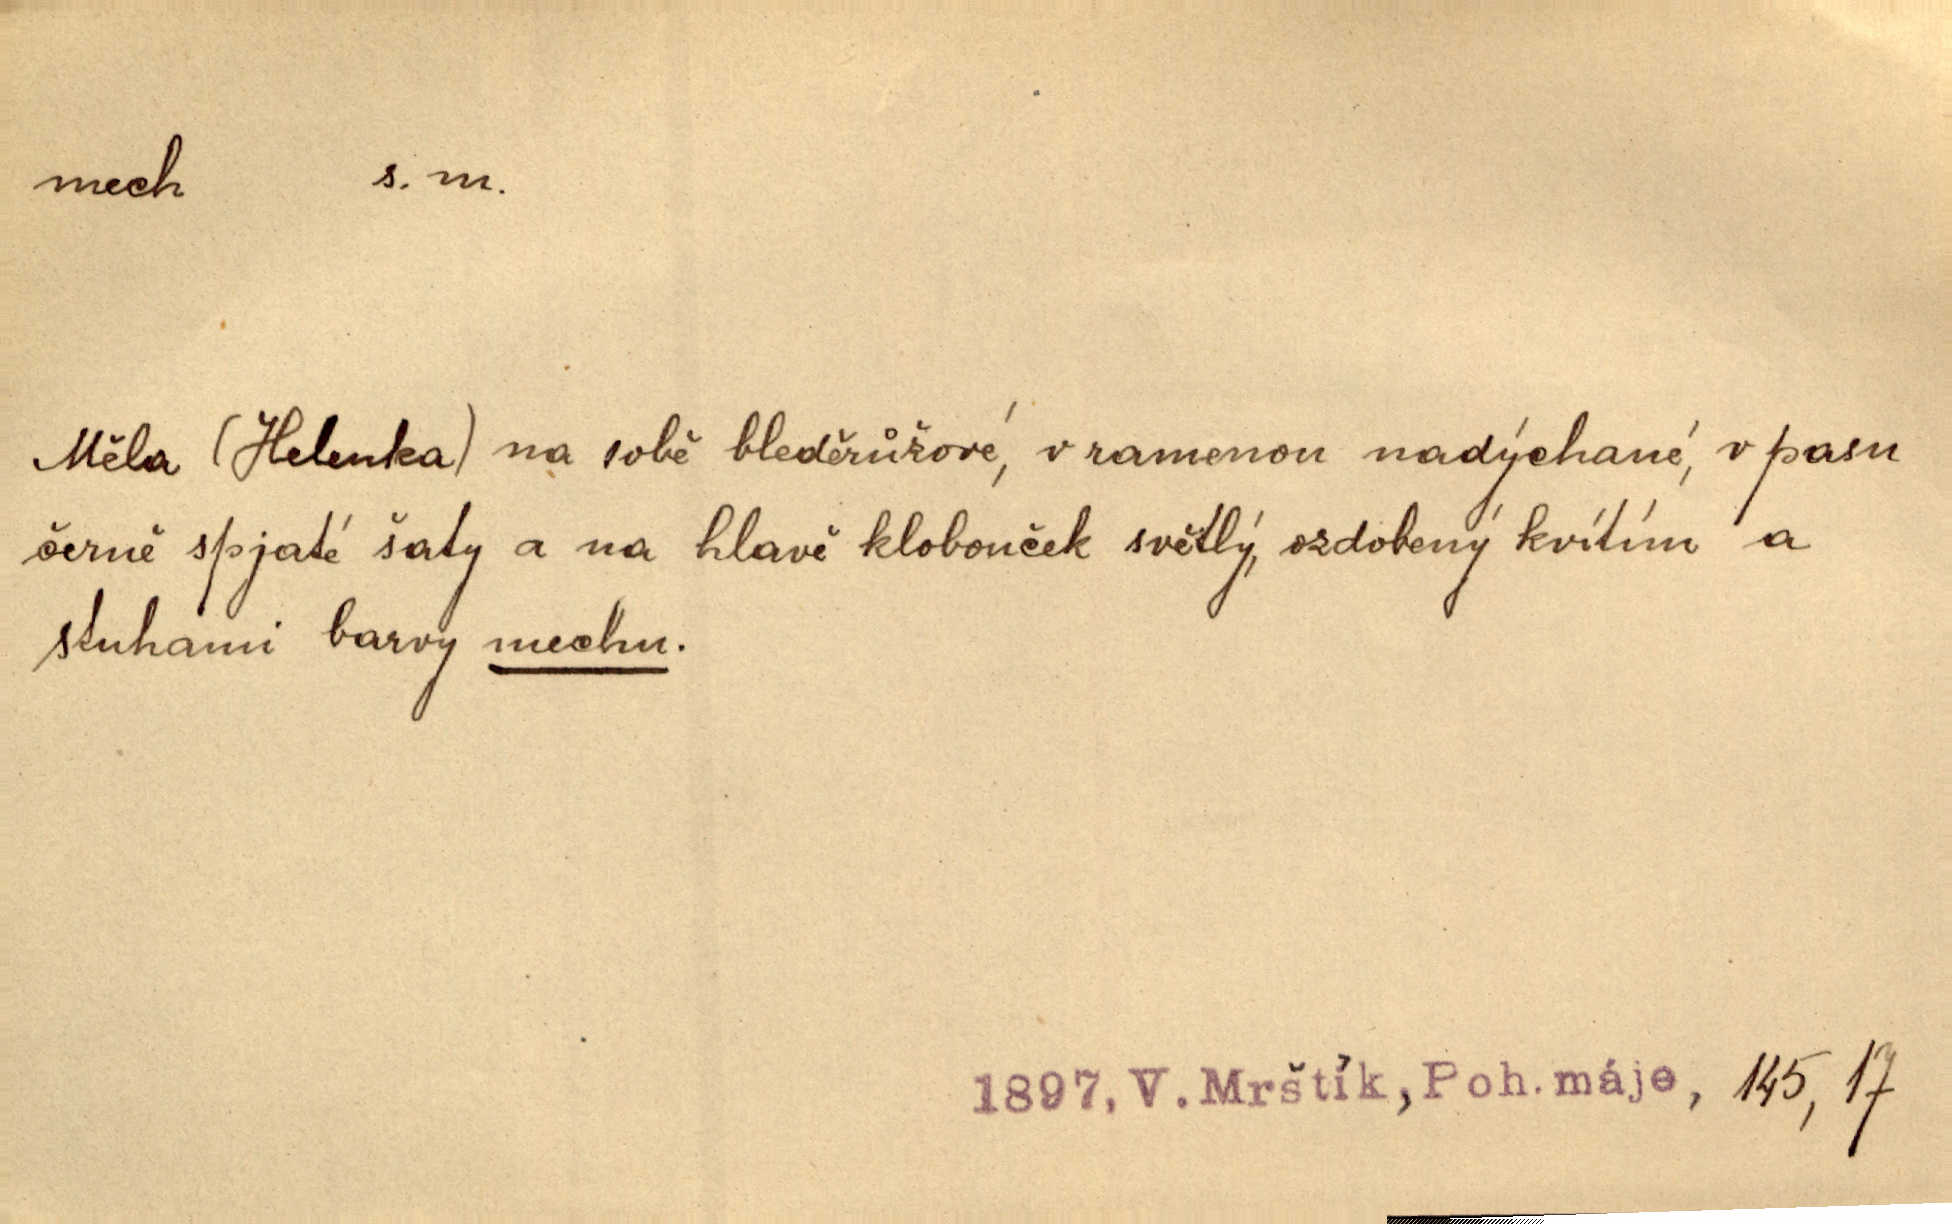 mech s. m.
Měla (Helenka) na sobě bleděrůžové, v ramenou nadýchané, v pasu
černě spjaté šaty a na hlavě klobouček světlý, ozdobený kvítím a
stuhami barvy mechu.
1897, V. Mrštík, Poh. máje, 145, 17